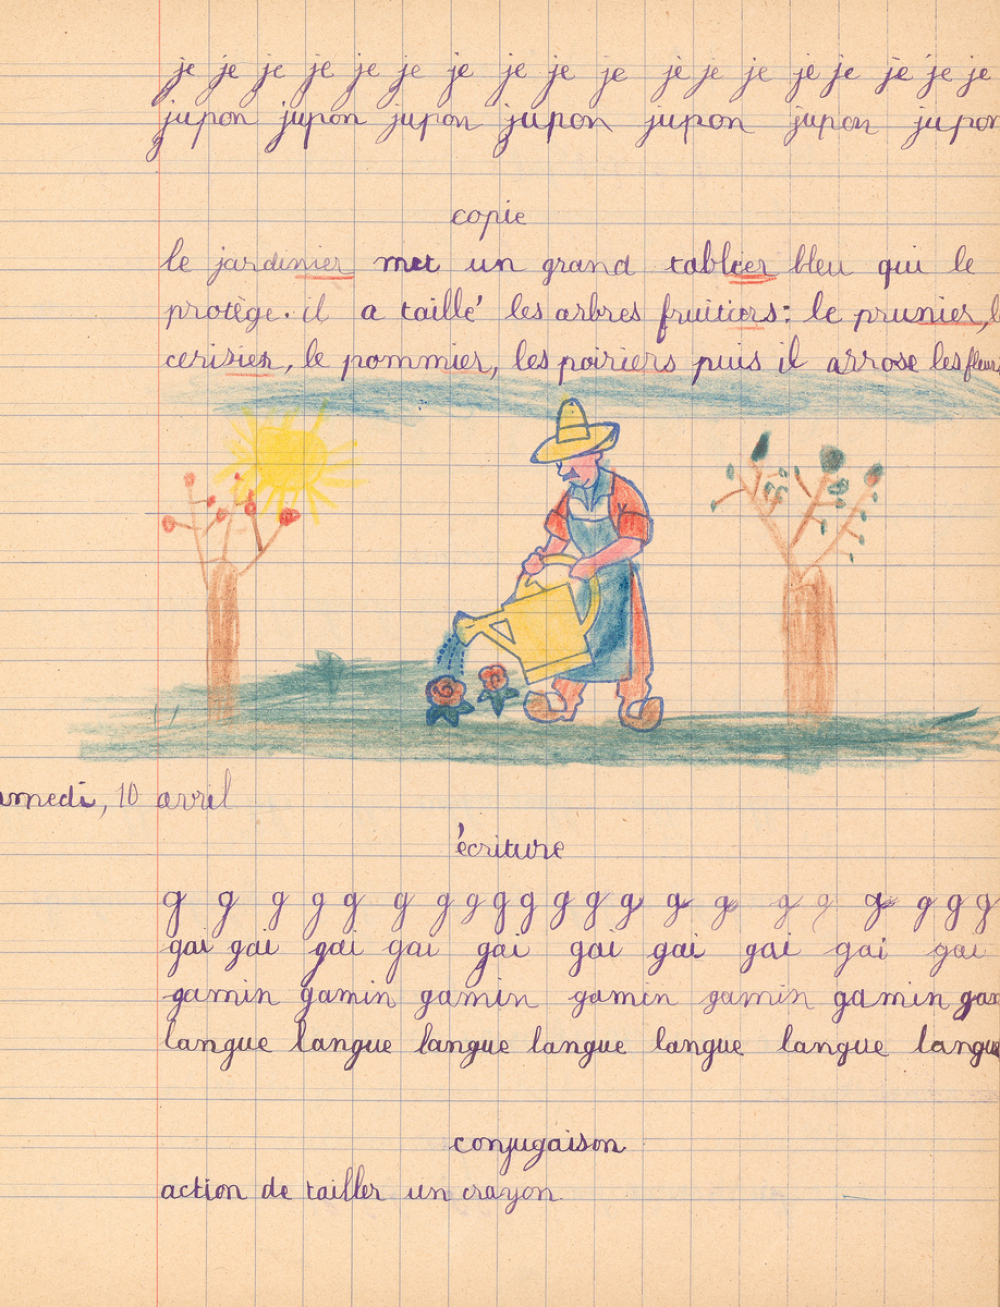 je je je je je je je je je je je je je je je je je je
jupon jupon jupon jupon jupon jupon jupon
copie
le jardinier met un grand tablier bleu qui le
protège. il a taillé les arbres fruitiers: le prunier, le
cerisier, le pommier, les poiriers puis il arrose les fleurs
amedi, 10 avril
écriture
g g g g g g g g g g g g g g g g g g g g g
gai gai gai gai gai gai gai gai gai gai
gamin gamin gamin gamin gamin gamin gam
langue langue langue langue langue langue langue
conjugaison
action de tailler un crayon.